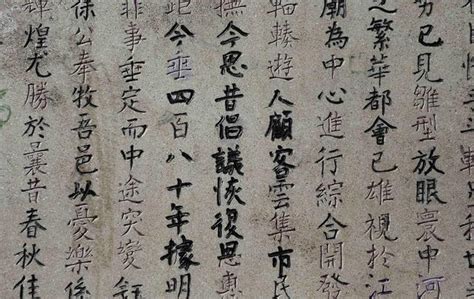 已見雛型放眼寰中河
之繁華都會已雄視於江
廟為中心進行綜合開發
輻輳遊人顧客雲集市民
撫今思昔倡議恢復恩
距今垂四百八十年據明
菲事垂定而中途突變
公奉牧吾邑以憂樂係
輝煌尤勝於曩昔春秋佳